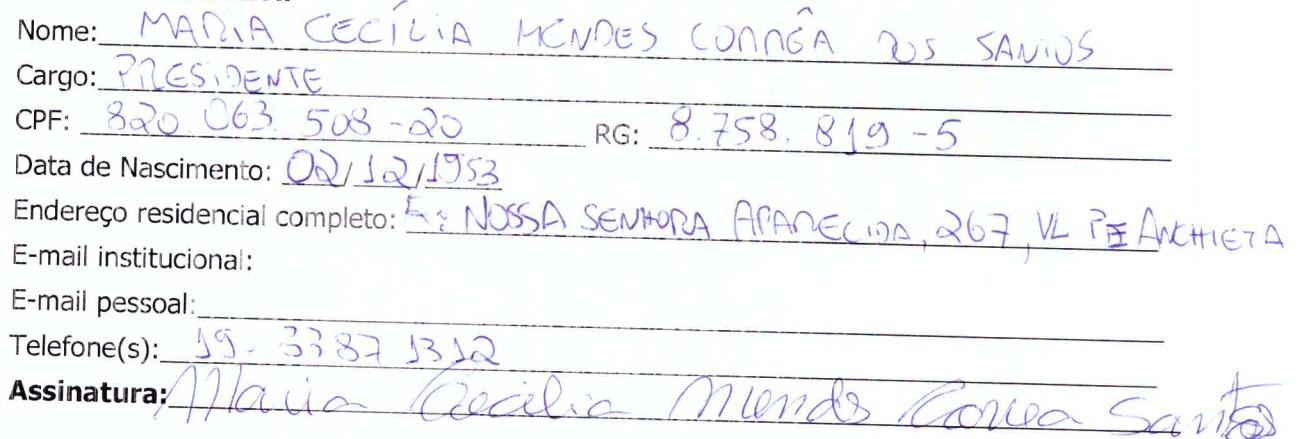 Nome: MARIA CECÍLIA MENDES CORRÊA DOS SANTOS
Cargo: PRESIDENTE
CPF: 820.063.508-20 RG: 8.758.819-5
Data de Nascimento: 02/12/1953
Endereço residencial completo: NOSSA SENHORA APARECIDA, 267, VL PE ANCHIETA
E-mail institucional:
E-mail pessoal:
Telefone(s): 19-3387 1312
Assinatura: Maria Cecilia Mendes Correa Santos